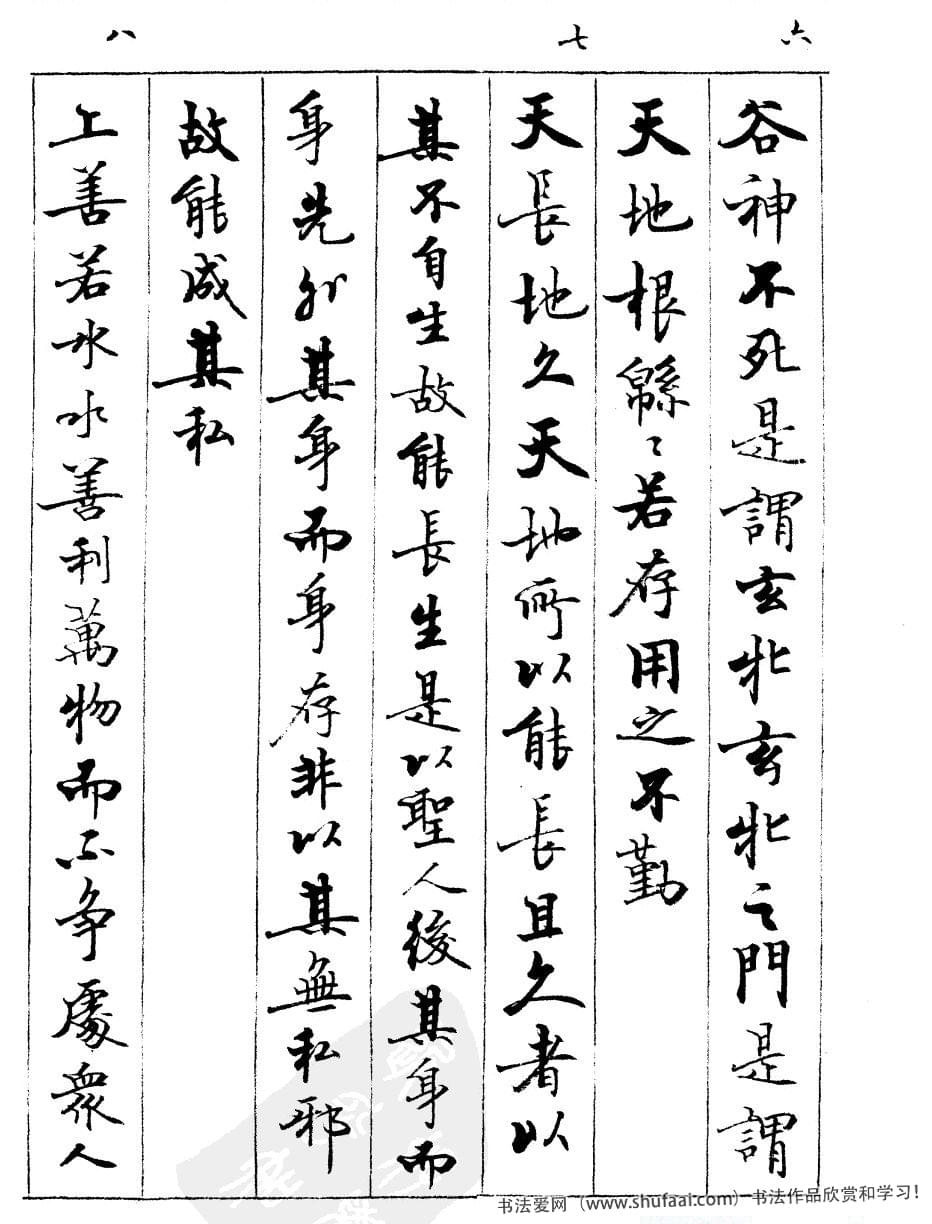 六
谷神不死是謂玄牝玄牝之門是謂
天地根緜〻若存用之不勤
七
天長地久天地所以能長且久者以
其不自生故能長生是以聖人後其身而
身先外其身而身存非以其無私邪
故能成其私
八
上善若水水善利萬物而不争處衆人
书法爱网（www.shufaai.com）书法作品欣赏和学习！